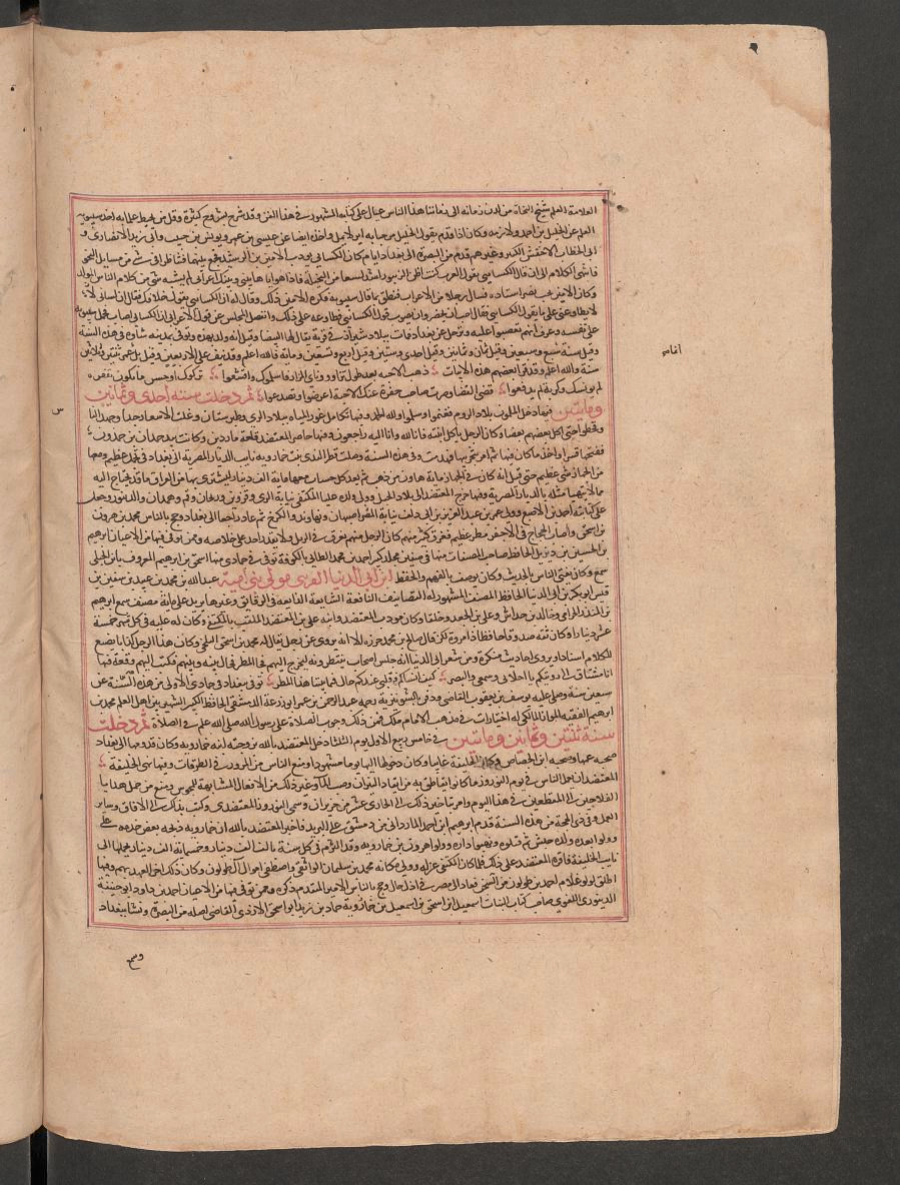 العلامة العلم شيخ النحاة من لدن زمانه الى زماننا هذا الناس عيال على كتابه المشهور في هذا الفن وقد شرح بشروح كثيرة وقل من يحيط علما به اخذ سيبويه
العلم عن الخليل بن احمد ولازمه وكان اذا قدم يقول الخليل مرحبا بزاير لا يمل واخذ ايضا عن عيسى بن عمر ويونس بن حبيب وابي زيد الانصاري و
ابي الخطاب الاخفش الكبير وغيرهم قدم من البصرة الى بغداد ايام كان الكسائي يودب الامين بن الرشيد فجمع بينهما فتناظرا في شي من مسايل النحو
فانتهى الكلام الى ان قال الكسائي يقول العرب كنت اظن الزنبور اشد لسعا من النحلة فاذا هو اياها بيني وبينك اعرابي لم يشبه شي من كلام الناس المولد
وكان الامين يحب نصر استاده فسال رجلا من الاعراب فنطق بما قال سيبويه فكره الامين ذلك وقال له ان الكسائي يقول خلافك فقال ان لساني لا
لا يطاوعني على ما يقول الكسائي فقال احب ان تحضر وان تصوب قول الكسائي فطاوعه على ذلك وانفصل المجلس عن قول الاعرابي ان الكسائي اصاب فحمل سيبويه
على نفسه وعرف انهم تعصبوا عليه ورحل عن بغداد فمات ببلاد شيراز في قرية يقال لها البيضا وقيل انه ولد بهذه وتوفي بمدينه ساوه في هذه السنة
وقيل سنة سبع وسبعين وقيل ثمان وثمانين وقيل احدى وستين وقيل اربع وتسعين ومايه فالله اعلم وقد نيف على الاربعين وقيل بل عمره ثنتين وثلاثين
سنة والله اعلم وقد قرا بعضهم هذه الابيات ذهب الاحبه بعد طول تزاور وناى المزار فاسلموك واقشعوا تركوك اوحش ما يكون بقفره
لم يونسوك وكربة لم يدفعوا قضي القضا وصرت صاحب حفرة عنك الاحبة اعرضوا وتصدعوا ثم دخلت سنه احدى وثمانين
ومايتين فيها دخل المسلمون بلاد الروم فغنموا وسلموا ولله الحمد وفيها تكامل غور المياه ببلاد الري وطبرستان وغلت الاسعار جدا وجهد الناس
وقحطوا حتى اكل بعضهم بعضا وكان الرجل ياكل ابنه فانا لله وانا اليه راجعون وفيها حاصر المعتضد قلعة ماردين وكانت بيد حمدان بن حمدون
ففتحها قسرا واخذ ما كان فيها ثم امر بتخريبها فهدمت وفي هذه السنة وصلت قطر الندى بنت خمارويه نايب الديار المصرية الى بغداد في تجمل عظيم ومعها
من الجهاز شي عظيم حتى قيل انه كان في الجهاز ماية هاون من ذهب ثم بعد كل حساب معها ماية الف دينار ليشترى بها من العراق ما قد يحتاج اليه
مما لا يتهيا مثله بالديار المصرية وفيها خرج المعتضد الى بلاد الجبل وولى ولده عليا المكتفي نيابة الري وقزوين وزنجان وقم وهمدان والدينور وجعل
على كتابته احمد بن الاصبغ وولى عمر بن عبد العزيز بن ابي دلف نيابة اصفهان ونهاوند والكرخ ثم عاد راجعا الى بغداد وحج بالناس محمد بن هرون
بن اسحق واصاب الحجاج في الاجفر مطر عظيم فغرق كثير منهم كان الرجل منهم يغرق في الرمل ولا يقدر احد على خلاصه وممن توفي فيها من الاعيان ابرهيم
بن الحسين بن ديزيل الحافظ صاحب المصنفات منها في صفين مجلد كبير احمد بن محمد الطائي بالكوفة توفي في جمادى منها اسحق بن ابرهيم المعروف بابن الجبلي
سمع وكان يفتي الناس بالحديث وكان يوصف بالفهم والحفظ ابن ابي الدنيا القرشي مولى بني امية عبد الله بن محمد بن عبيد بن سفين بن
قيس ابو بكر بن ابي الدنيا الحافظ المصنف المشهور له التصانيف النافعة الشايعة الذايعة في الرقايق وغيرها يزيد على ماية مصنف سمع ابرهيم
بن المنذر الحزامي وخالد بن خداش وعلي بن الجعد وخلقا وكان مودب المعتضد وابنه علي بن المعتضد الملقب بالمكتفي وكان له عليه في كل شهر خمسة
عشر دينارا وكان ثقة صدوقا حافظا ذا مروة لكن قال صالح بن محمد جزره الا انه يروي عن رجل يقال له محمد بن اسحق البلخي وكان هذا الرجل كذابا يضع
للكلام اسنادا ويروي احاديث منكرة ومن شعر ابن ابي الدنيا انه جلس اصحاب ينتظرونه ليخرج اليهم فجا المطر فحال بينه وبينهم فكتب اليهم رقعة فيها
انا مشتاق الى رويتكم يا اخلاي وسمعي والبصر كيف انساكم وقلبي عندكم حال فيما بيننا هذا المطر توفي ببغداد في جمادى الاولى من هذه السنة عن
سبعين سنة وصلى عليه يوسف بن يعقوب القاضي ودفن بالشونيزيه رحمه عبد الرحمن بن عمرو ابو زرعة الدمشقي الحافظ الكبير الشهير بابن اهل العلم محمد بن
ابرهيم الفقيه المالكي له اختيارات في مذهب الامام مالك فمن ذلك وجوب الصلاة على رسول الله صلى الله عليه وسلم في الصلاة ثم دخلت
سنة ثنتين وثمانين ومايتين في خامس ربيع الاول يوم الثلثا دخل المعتضد بالله بزوجته ابنه خمارويه وكان قدومها الى بغداد
صحبه عمها وصحبه ابن الخصاص وكان الخليفة غايبا وكان دخولها اليه يوما مشهودا ومنع الناس من المرور في الطرقات وفيها نهى الخليفة
المعتضد ان يعمل الناس في يوم النوروز ما كانوا يتعاطونه من ايقاد النيران وصب الماء وغير ذلك من الافعال المشابهة للمجوس ومنع من حمل هدايا
الفلاحين الى المقطعين في هذا اليوم وامر بتاخير ذلك الى الحادي عشر من حزيران وسمي النوروز المعتضدي وكتب بذلك الى الافاق وساير
العمال وفي ذي الحجة من هذه السنة قدم ابرهيم ابن احمد الماذرائي من دمشق على البريد فاخبر المعتضد بالله ان خمارويه ذبحه بعض خدمه على
وولوا بعده ولده جيش ثم قتلوه ونهبوا داره وولوا هرون بن خمارويه وقد التزم في كل سنة بالف الف دينار وخمسماية الف دينار يحملها الى
نايب الخليفة فاقره المعتضد على ذلك فلما كان المكتفي عزله وولى مكانه محمد بن سليمان الواثقي واصطفى اموال آل طولون وكان ذلك اخر العهد بهم وفيها
اطلق لولو غلام احمد بن طولون من السجن فعاد الى مصر في اذل حال وحج بالناس الامير المتقدم ذكره وممن توفي فيها من الاعيان احمد بن داود ابو حنيفة
الدينوري اللغوي صاحب كتاب النبات اسمعيل ابن اسحق بن اسمعيل بن حماد بن زيد ابو اسحق الازدي القاضي اصله من البصرة ونشا ببغداد
وسمع